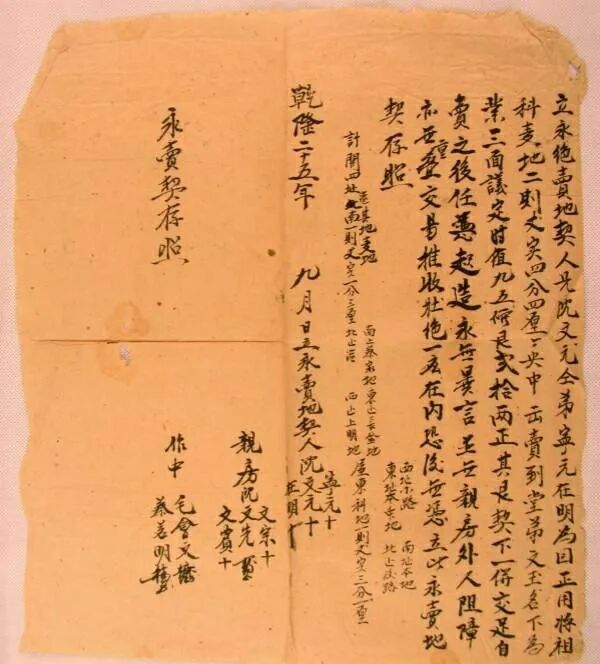 立永絶賣地契人兄沈文元仝弟寧元在明為因正用將祖
科麦地二則丈实四分四厘央中出賣到堂弟文玉名下為
業三面議定时值九五艮弍拾两正其艮契下一併交足自
賣之後任憑起造永無異言並無親房外人阻障
亦無重叠交易推收杜絶一應在內恐後無憑立此永賣地
契存照
計開四址
墓其地麦地
南一則丈实一分三厘北止
南止蔡家地
東止
西止上明地
屋東科地一則丈实三分一厘
西址小路
東址本宅地
南址本地
北止路
乾隆二十五年 九月 日立永賣地契人沈文元十
寧元十
在明十
親房沈文先
文宗十
文賓十
作中
毛會文
蔡若明
永賣契存照